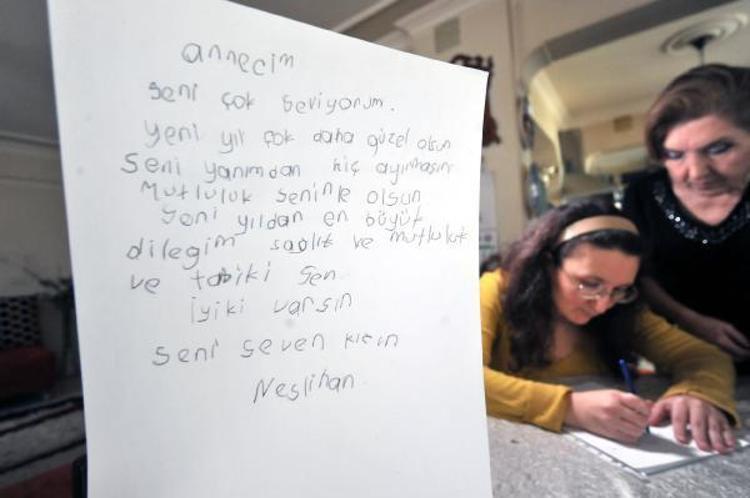 annecim
seni çok seviyorum.
yeni yıl çok daha güzel olsun
seni yanımdan hiç ayırmasın
Mutluluk seninle olsun
yeni yıldan en büyük
dilegim sağlık ve mutluluk
ve tabiki sen
iyiki varsın
seni seven kızın
Neslihan